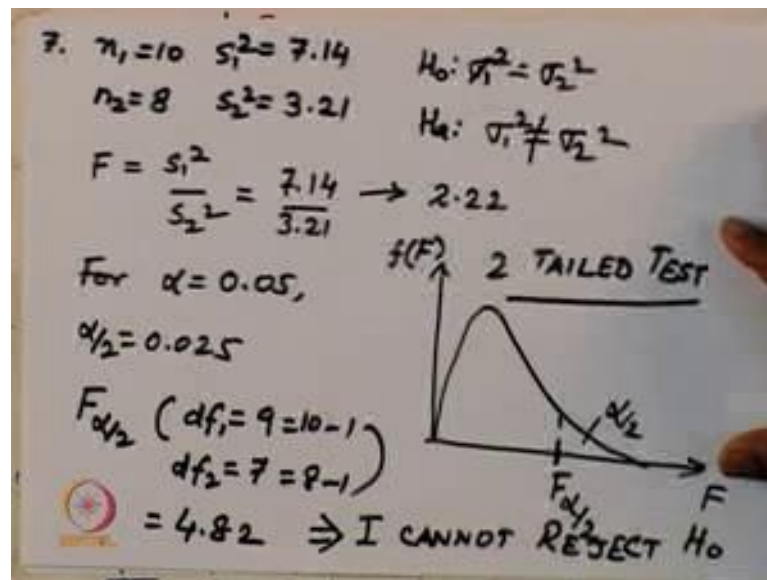 7. n₁=10 s₁²= 7.14
n₂=8 s₂²= 3.21
H₀: σ₁²= σ₂²
Hₐ: σ₁²≠ σ₂²
F = s₁²/s₂² = 7.14/3.21 → 2.22
For α=0.05,
α/2=0.025
F_α/2 (df₁= 9 =10-1,
df₂= 7 = 8-1)
= 4.82 ⇒ I CANNOT REJECT H₀
2 TAILED TEST
f(F)
α/2
F_α/2
F